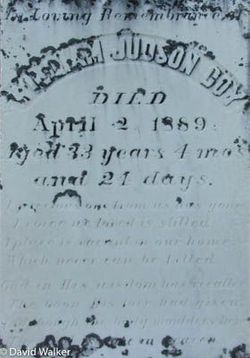 In Loving Remembrance of
JUDSON COY
DIED
April 2 1889.
Aged 33 years 4 mo
and 21 days.
from us has gone
A voice we loved is stilled
A place is vacant in our home
Which never can be filled
God in His wisdom has recalled
The boon his love had given
the body
© David Walker